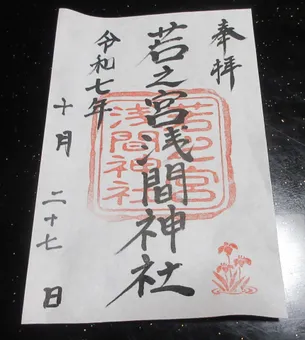 奉拝
若之宮浅間神社
令和七年
十月二十七日
若之宮
浅間神社